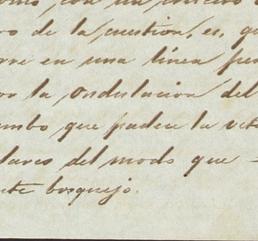 con un
ro de la cuestion, es, q
rre en una linea
or la ondulacion del
mbo que padece la
lares del modo que
ste bosquejo.